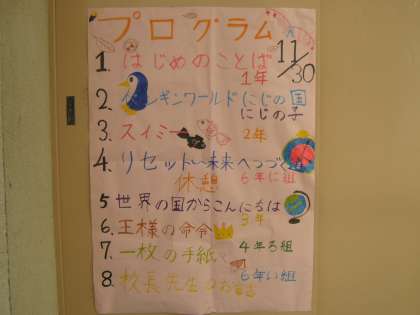 プログラム
11/30
1. はじめのことば 1年
2. ペンギンワールド にじの国
にじの子
3. スイミー 2年
4. リセット〜未来へつづく道
休憩 6年に組
5 世界の国からこんにちは
3年
6. 王様の命令
7. 一枚の手紙 4年ろ組
8. 校長先生のお話 6年い組